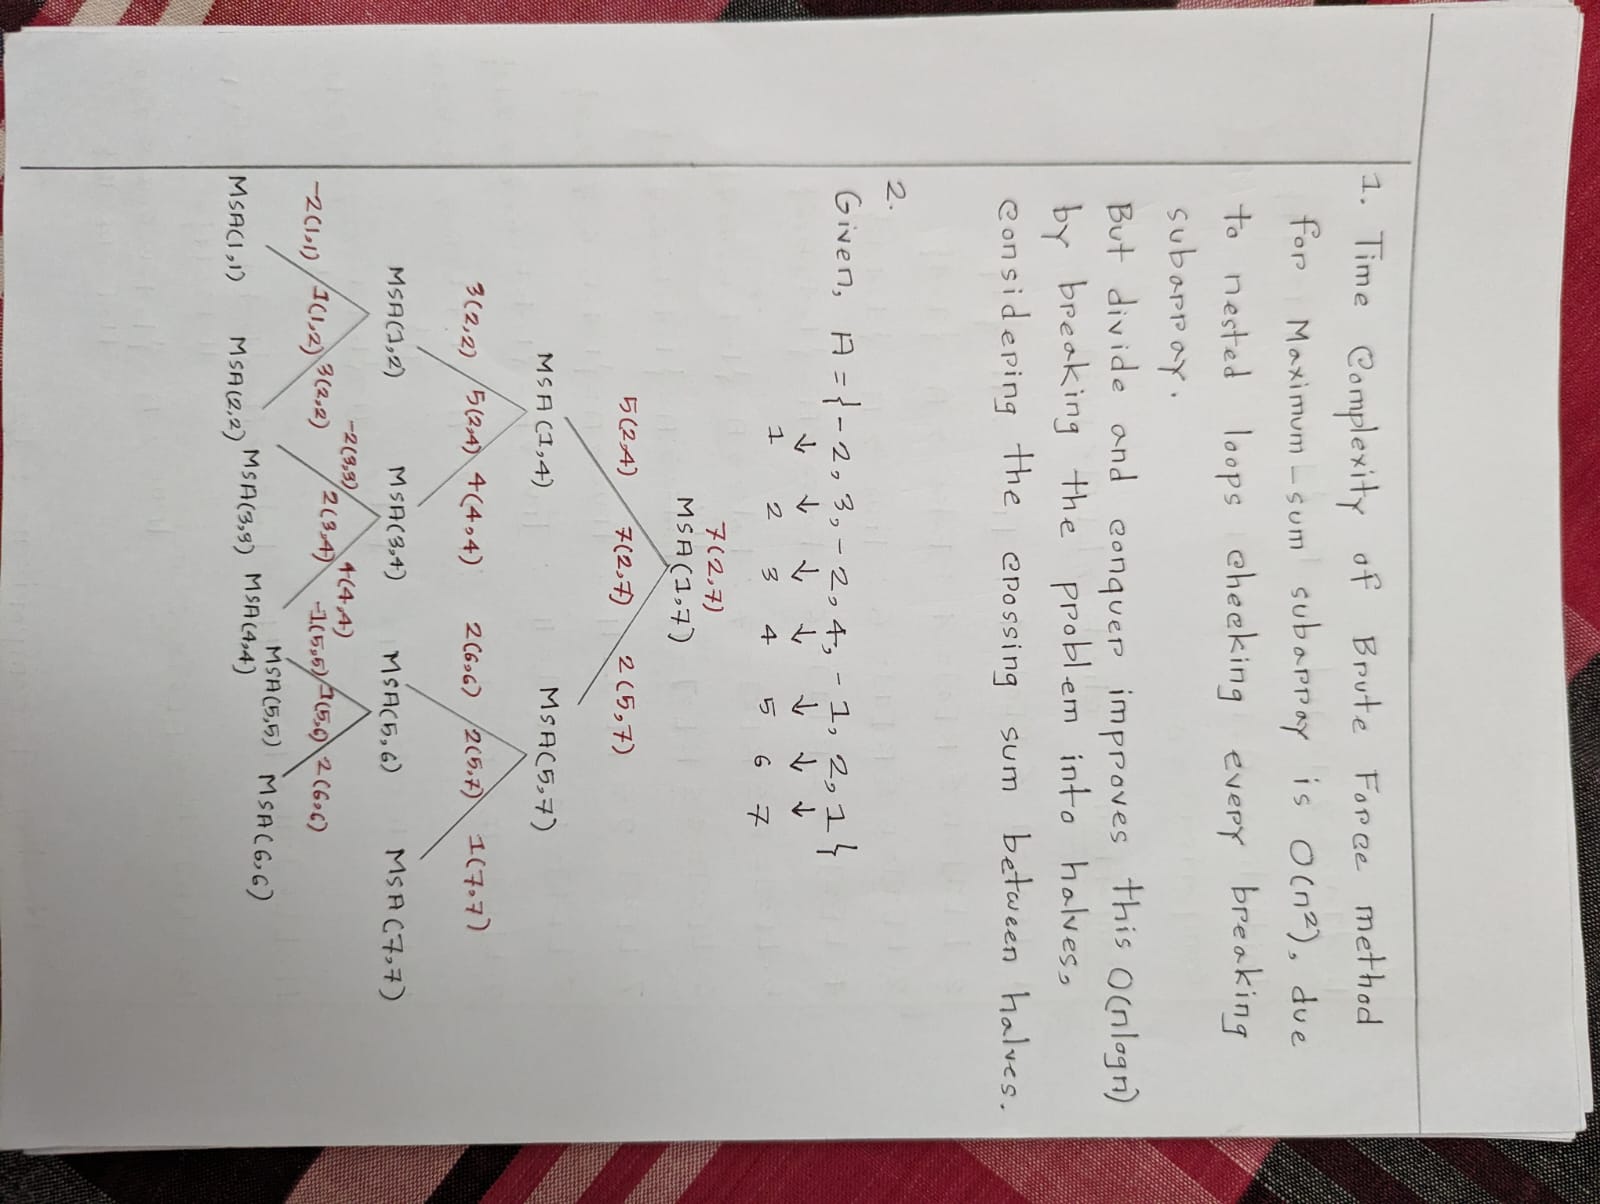 1. Time Complexity of Brute Force method
for Maximum-sum subarray is O(n²), due
to nested loops checking every breaking
subarray.
But divide and conquer improves this O(nlogn)
by breaking the problem into halves,
considering the crossing sum between halves.
2.
Given, A = {-2, 3, -2, 4, -1, 2, 1}
↓ ↓ ↓ ↓ ↓ ↓ ↓
1 2 3 4 5 6 7
7(2,7)
MSA(1,7)
5(2,4) 7(2,7) 2(5,7)
MSA(1,4) MSA(5,7)
3(2,2) 5(2,4) 4(4,4) 2(6,6) 2(5,7) 1(7,7)
MSA(1,2) MSA(3,4) MSA(5,6) MSA(7,7)
-2(1,1) 1(1,2) 3(2,2) -2(3,3) 2(3,4) 4(4,4) -1(5,5) 1(5,6) 2(6,6)
MSA(1,1) MSA(2,2) MSA(3,3) MSA(4,4) MSA(5,5) MSA(6,6)